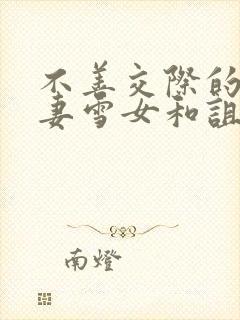 不善交際的
妻雪女和詛
南燈